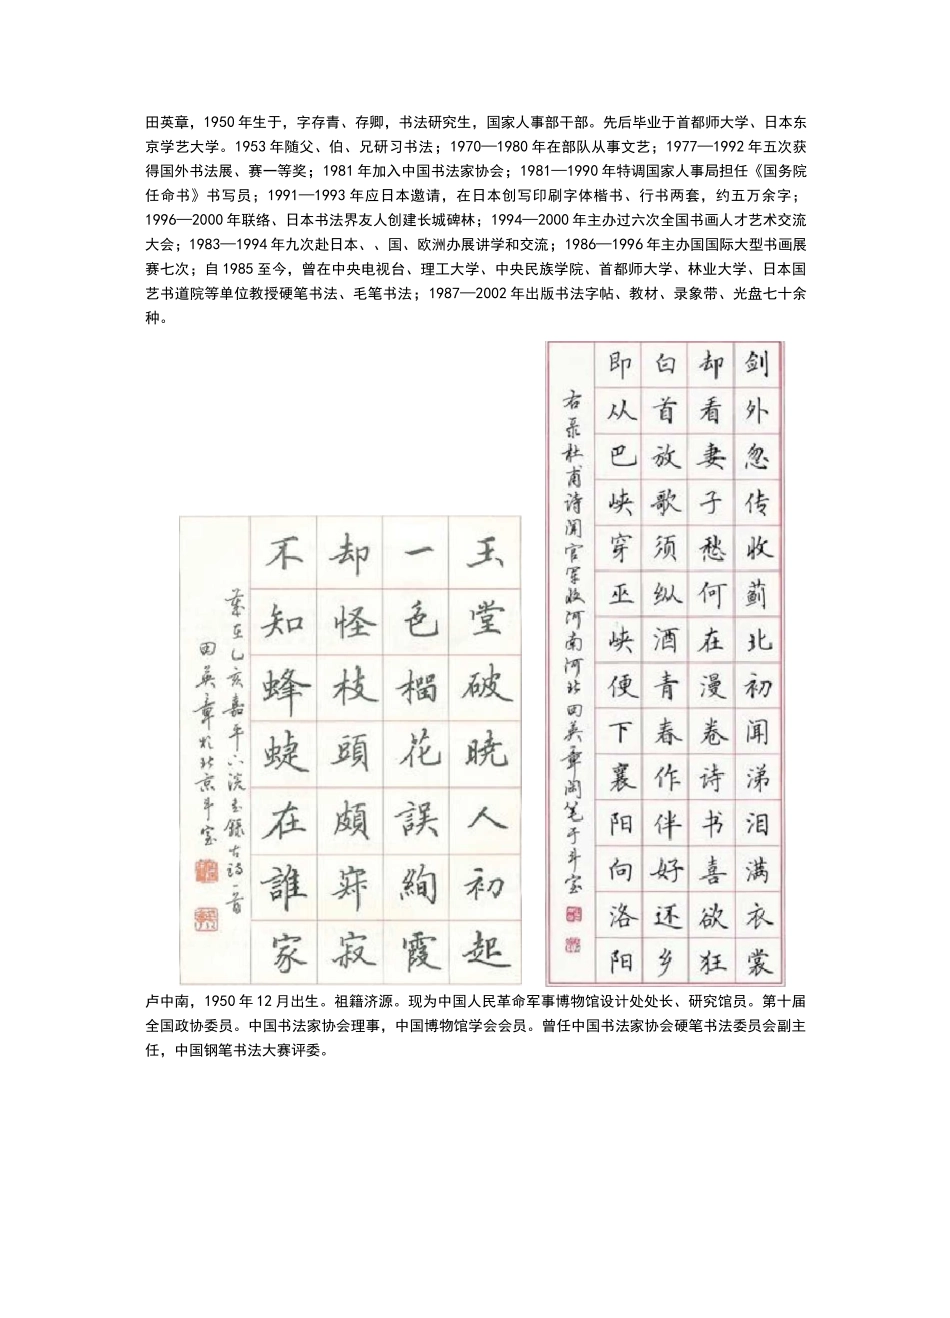 田英章，1950 年生于，字存青、存卿，书法研究生，国家人事部干部。先后毕业于首都师大学、日本东
京学艺大学。1953 年随父、伯、兄研习书法；1970—1980 年在部队从事文艺；1977—1992 年五次获
得国外书法展、赛一等奖；1981 年加入中国书法家协会；1981—1990 年特调国家人事局担任《国务院
任命书》书写员；1991—1993 年应日本邀请，在日本创写印刷字体楷书、行书两套，约五万余字；
1996—2000 年联络、日本书法界友人创建长城碑林；1994—2000 年主办过六次全国书画人才艺术交流
大会；1983—1994 年九次赴日本、、国、欧洲办展讲学和交流；1986—1996 年主办国国际大型书画展
赛七次；自 1985 至今，曾在中央电视台、理工大学、中央民族学院、首都师大学、林业大学、日本国
艺书道院等单位教授硬笔书法、毛笔书法；1987—2002 年出版书法字帖、教材、录象带、光盘七十余
种。
玉堂破晓人初起
一色榴花误絢霞
却怪枝頭頗寂寂
不知蜂蜨在誰家
岁在乙亥嘉平下浣书录古诗一首
田英章于北京斗室
剑外忽传收蓟北初闻涕泪满衣裳
却看妻子愁何在漫卷诗书喜欲狂
白首放歌须纵酒青春作伴好还乡
即从巴峡穿巫峡便下襄阳向洛阳
右录杜甫诗闻官军收河南河北田英章闲笔于斗室
卢中南，1950 年 12 月出生。祖籍济源。现为中国人民革命军事博物馆设计处处长、研究馆员。第十届
全国政协委员。中国书法家协会理事，中国博物馆学会会员。曾任中国书法家协会硬笔书法委员会副主
任，中国钢笔书法大赛评委。